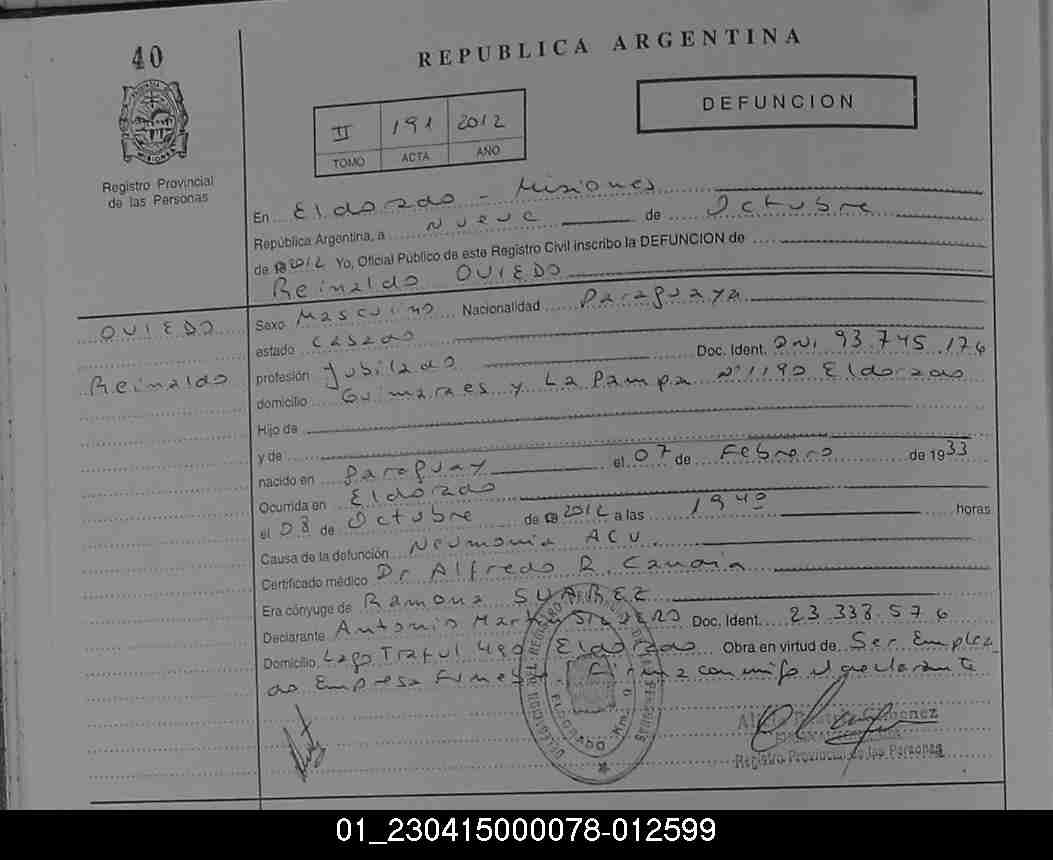 40
REPUBLICA ARGENTINA
DEFUNCION
II 191 2012
TOMO ACTA AÑO
PROVINCIA DE MISIONES
Registro Provincial
de las Personas
En Eldorado - Misiones
República Argentina, a Nueve de Octubre
de 2012 Yo, Oficial Público de este Registro Civil inscribo la DEFUNCION de
Reinaldo OVIEDO
OVIEDO
Reinaldo
Sexo Masculino Nacionalidad Paraguaya
estado Casado
profesión Jubilado Doc. Ident. DNI 93.745.176
domicilio Guimaraes y La Pampa Nº1190 Eldorado
Hijo de
y de
nacido en Paraguay el 07 de Febrero de 1933
Ocurrida en Eldorado
el 08 de Octubre de 2012 a las 19 40 horas
Causa de la defunción Neumonia ACV.
Certificado médico Dr Alfredo R. Candia
Era cónyuge de Ramona SUAREZ
Declarante Antonio Martin Doc. Ident. 23.338.576
Domicilio Lago Traful 490 Eldorado Obra en virtud de Ser Emplea
do Empresa Funeb. Firma conmigo el declarante
Registro Provincial de las Personas
01_230415000078-012599